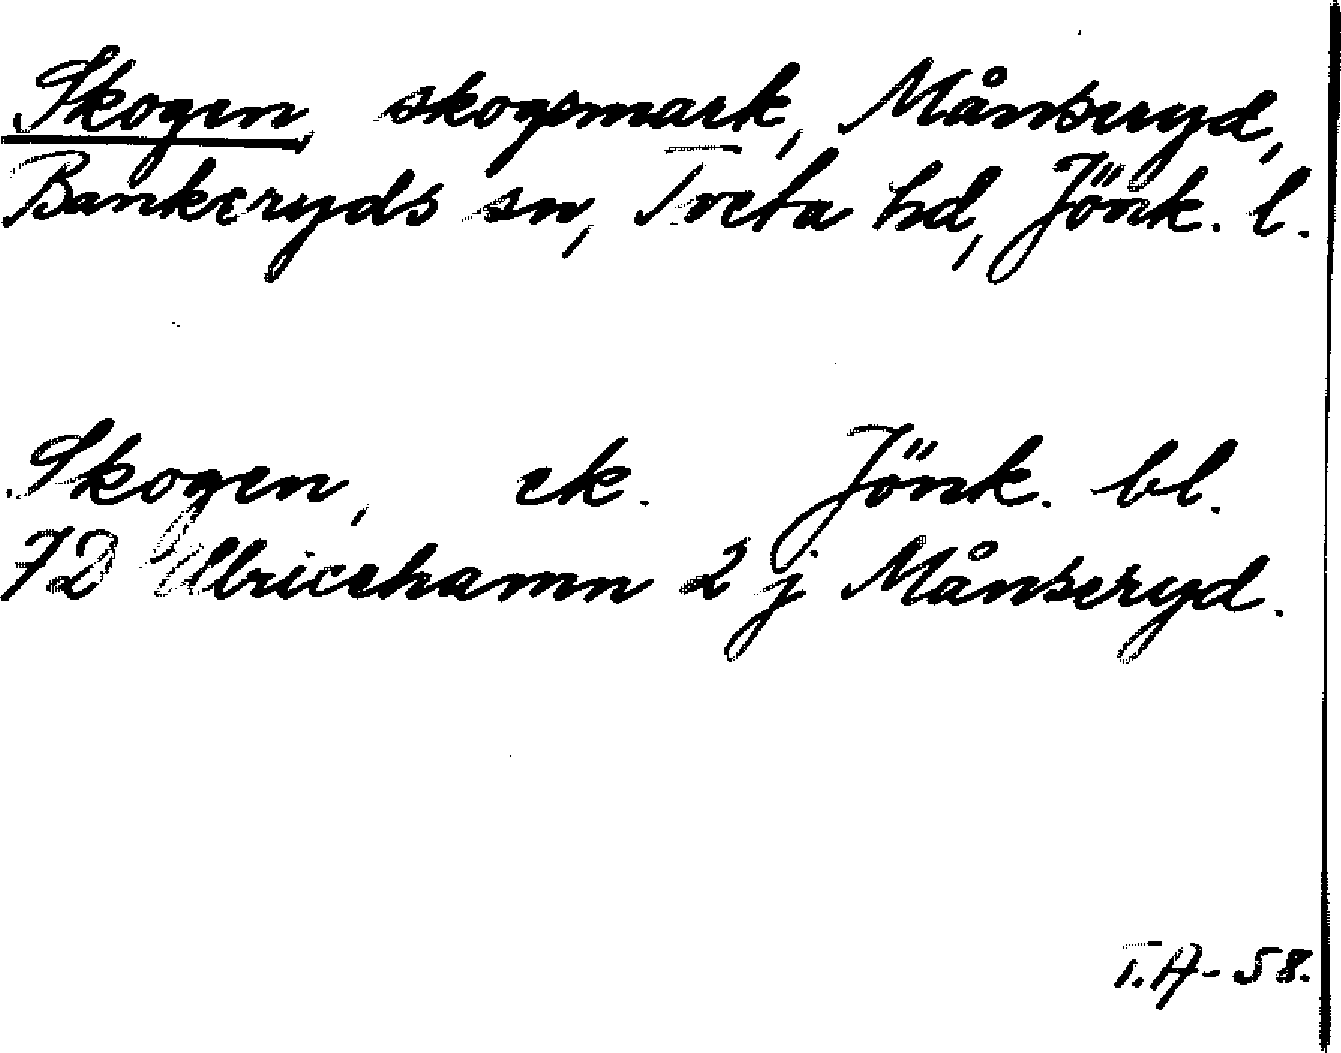 Skogen, skogsmark, Månseryd,
Bankeryds sn, Tveta hd, Jönk. l.
Skogen, ek. Jönk. bl.
7D Ulricehamn 2 j Månseryd.
T.A-58.